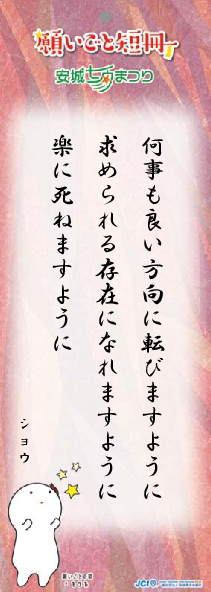 願いごと短冊
安城七夕まつり
何事も良い方向に転びますように
求められる存在になれますように
楽に死ねますように
ショウ
願いごと妖精
きーぼー
JCI